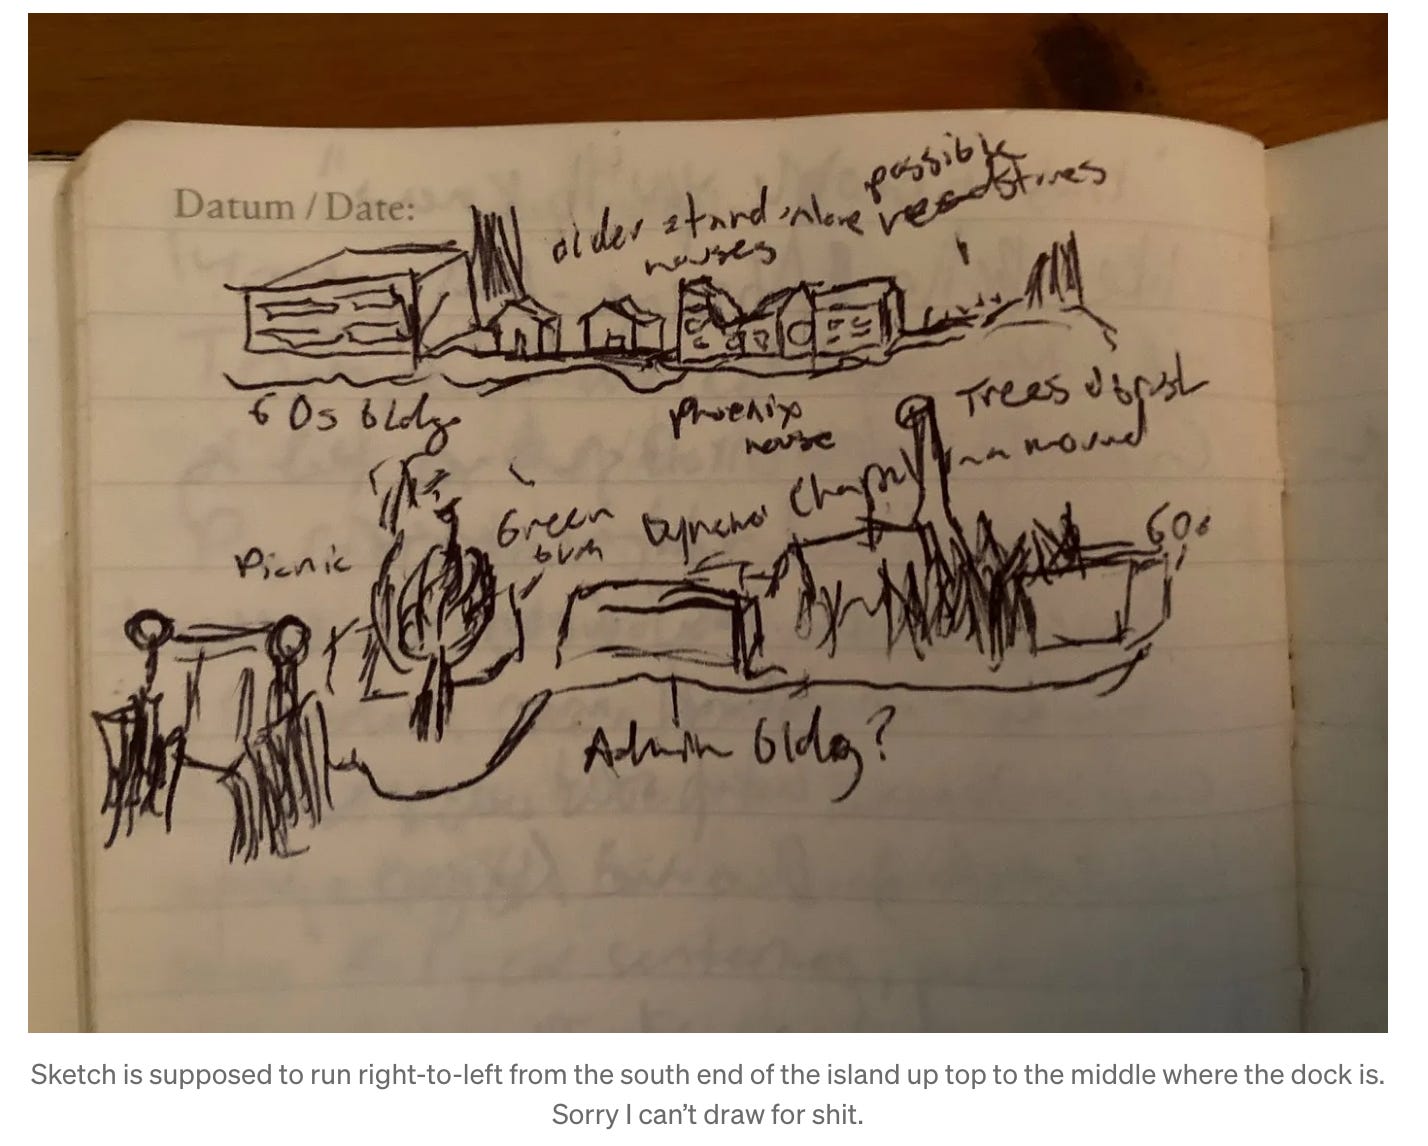 Datum / Date:
possible
older stand alone
houses
60s bldg
Phoenix
house
Trees & brush
on a mound
Chapel
Dynamo
Green
Picnic
60s
Admin bldg?
Sketch is supposed to run right-to-left from the south end of the island up top to the middle where the dock is.
Sorry I can't draw for shit.